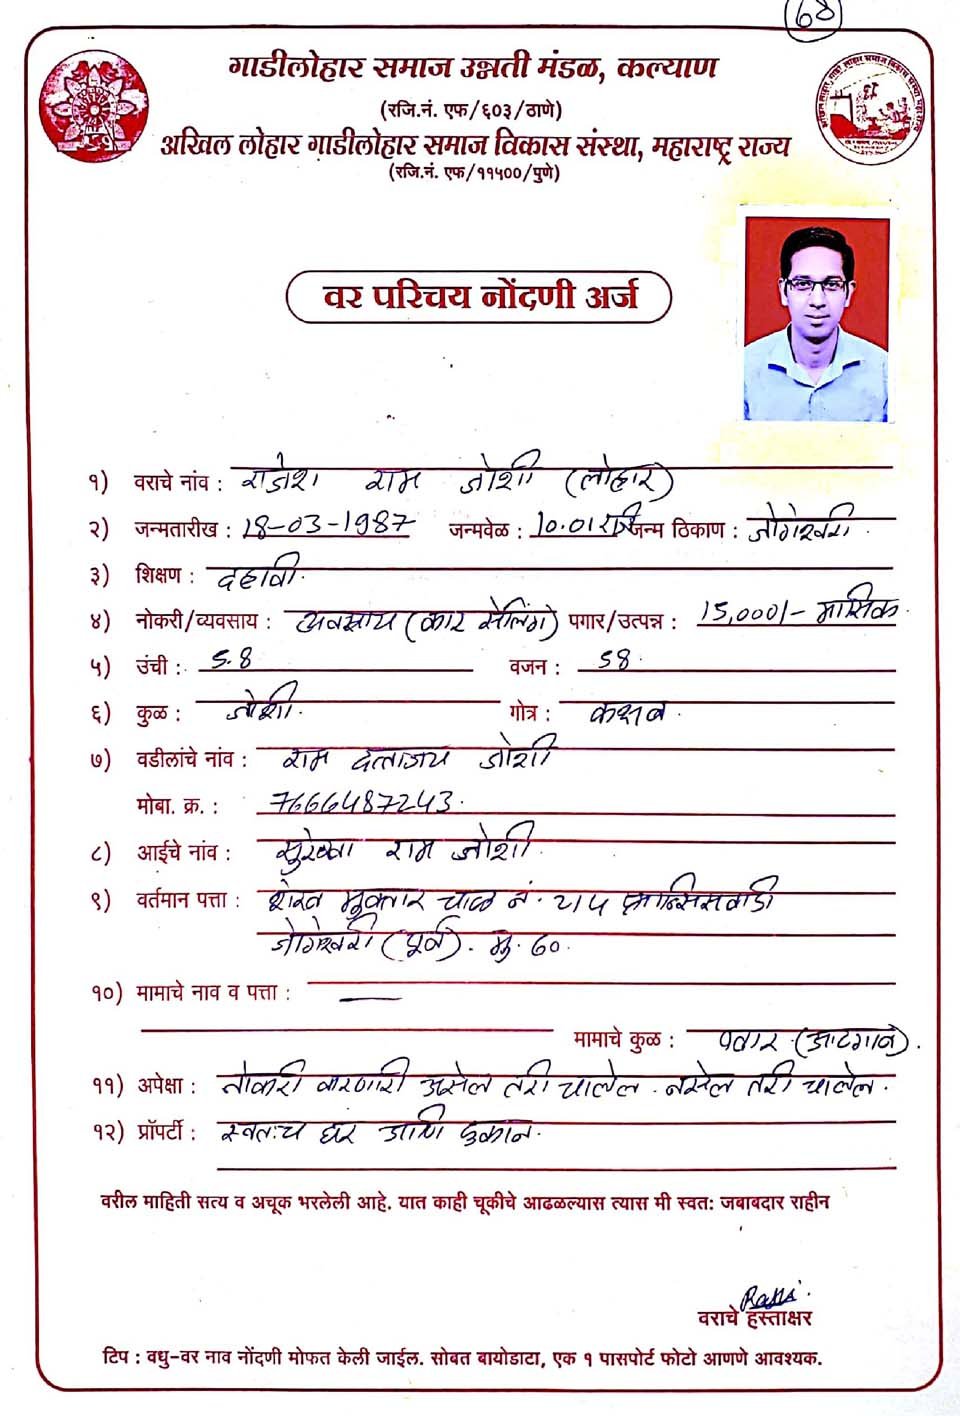 68
गाडीलोहार समाज उन्नती मंडळ, कल्याण
(रजि.नं. एफ/६०३/ठाणे)
अखिल लोहार गाडीलोहार समाज विकास संस्था, महाराष्ट्र राज्य
(रजि.नं. एफ/११५००/पुणे)
वर परिचय नोंदणी अर्ज
१) वराचे नांव : राजेश राम जोशी (लोहार)
२) जन्मतारीख : 18-03-1987 जन्मवेळ : 10.01 रात्रि जन्म ठिकाण : जोगेश्वरी.
३) शिक्षण : दहावी.
४) नोकरी/व्यवसाय : व्यवसाय (कार सेलिंग) पगार/उत्पन्न : 15,000/- मासिक.
५) उंची : 5.8 वजन : 58.
६) कुळ : जोशी. गोत्र : कश्यब.
७) वडीलांचे नांव : राम दत्तात्रय जोशी
मोबा. क्र. : 7666487243.
८) आईचे नांव : सुरेखा राम जोशी.
९) वर्तमान पत्ता : शेख मुक्तार चाळ नं. २/५ फ्रान्सिसवाडी
जोगेश्वरी (पूर्व). मु. ६०.
१०) मामाचे नाव व पत्ता : —
मामाचे कुळ : पवार. (आटगाव).
११) अपेक्षा : नोकरी करणारी असेल तरी चालेल. नसेल तरी चालेल.
१२) प्रॉपर्टी : स्वतःच घर आणि दुकान.
वरील माहिती सत्य व अचूक भरलेली आहे. यात काही चूकीचे आढळल्यास त्यास मी स्वत: जबाबदार राहीन
वराचे हस्ताक्षर
टिप : वधु-वर नाव नोंदणी मोफत केली जाईल. सोबत बायोडाटा, एक १ पासपोर्ट फोटो आणणे आवश्यक.